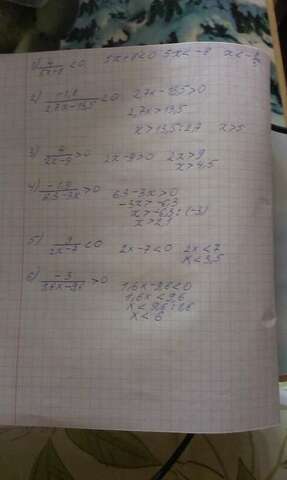 1) 4/5x+8 <0 5x+8<0 5x<-8 x<-8/5
2) -1,8/2,7x-13,5 <0 2,7x-13,5>0
2,7x>13,5
x>13,5:2,7 x>5
3) /2x-9 >0 2x-9>0 2x>9
x>4,5
4) /6,3-3x >0 6,3-3x>0
-3x>-6,3
x>-6,3:(-3)
x>2,1
5) /2x-7 <0 2x-7<0 2x<7
x<3,5
6) -3/1,6x-9,6 >0 1,6x-9,6<0
1,6x<9,6
x<9,6:1,6
x<6